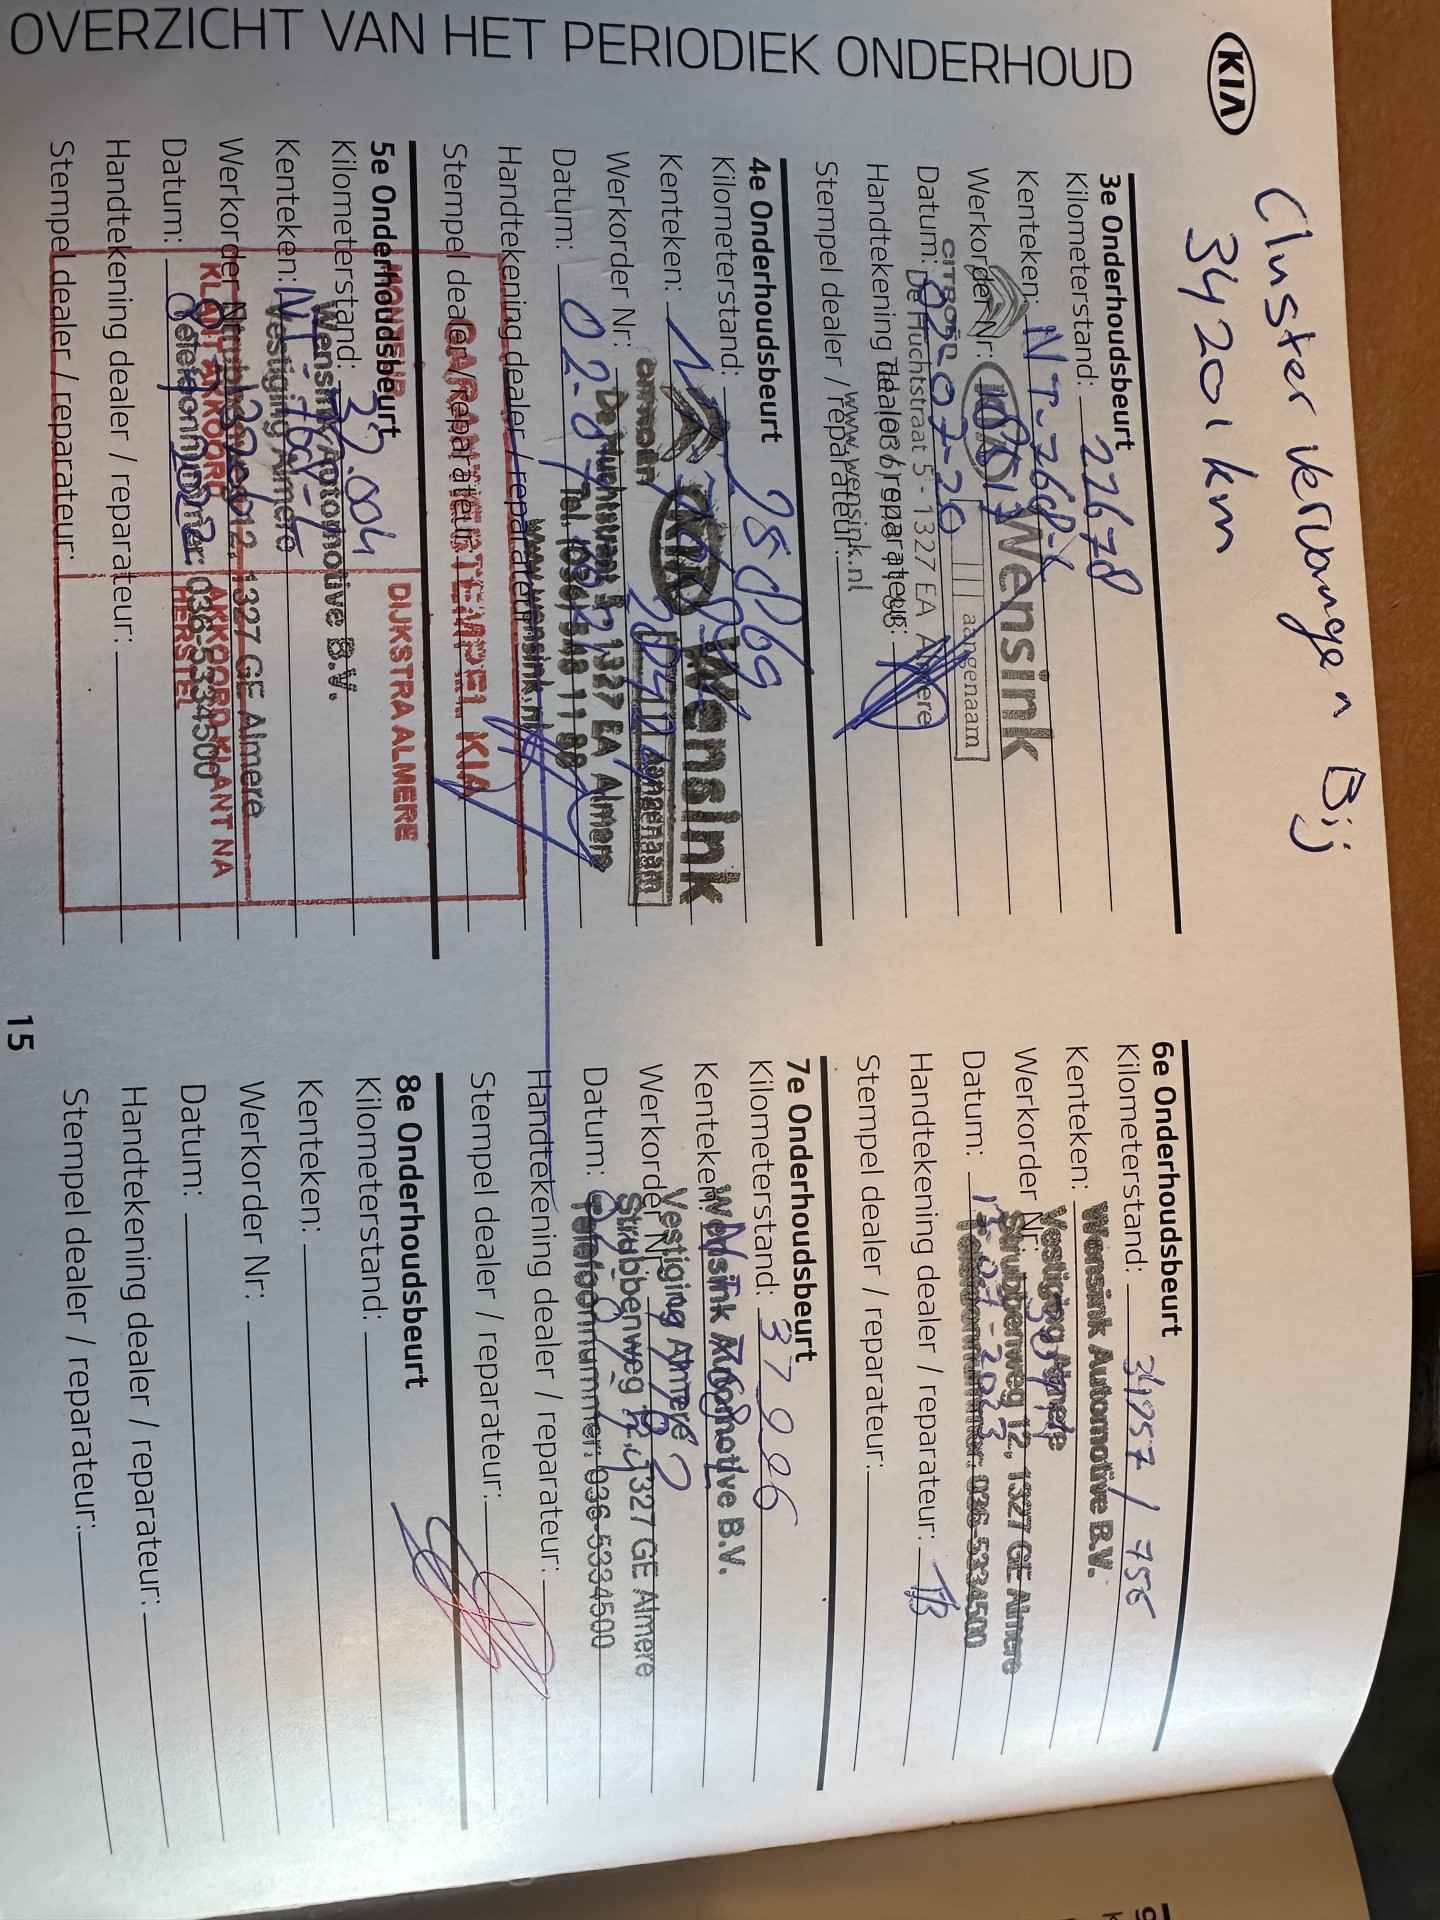 Cluster vervangen Bij
34201 km
KIA
OVERZICHT VAN HET PERIODIEK ONDERHOUD
3e Onderhoudsbeurt
Kilometerstand: 22678
Kenteken: NT-768-
Wensink
Werkorder Nr:
KIA aangenaam
CITROËN
Datum: -07-20
De Huchtstraat 5 - 1327 EA Almere
Handtekening dealer / reparateur:
www.wensink.nl
Stempel dealer / reparateur:
4e Onderhoudsbeurt
Kilometerstand: 28869
Kenteken:
Wensink
Werkorder Nr:
KIA aangenaam
citroën
De Huchtstraat 5 1327 EA Almere
Datum: 02-
Tel. 036/ 548 11 80
Handtekening dealer / reparateur:
www.wensink.nl
Stempel dealer / reparateur:
GARANTIESTEMPEL KIA
5e Onderhoudsbeurt
MONTEUR
DIJKSTRA ALMERE
Kilometerstand: .004
Wensink Automotive B.V.
Kenteken: NT-768-
Vestiging Almere
Werkorder Nr:
12, 1327 GE Almere
KLANT AKKOORD
AKKOORD KLANT NA
HERSTEL
Datum:
Telefoonnummer: 036-5334500
Handtekening dealer / reparateur:
Stempel dealer / reparateur:
6e Onderhoudsbeurt
Kilometerstand: 34957 / 756
Wensink Automotive B.V.
Kenteken:
Vestiging Almere
Werkorder Nr:
Strubbenweg 12, 1327 GE Almere
Datum: -07-2023
Telefoonnummer: 036-5334500
Handtekening dealer / reparateur: TB
Stempel dealer / reparateur:
7e Onderhoudsbeurt
Kilometerstand: 37996
Kenteken: NT-768-
Wensink Automotive B.V.
Vestiging Almere
Werkorder Nr:
Strubbenweg 12, 1327 GE Almere
Datum:
Telefoonnummer: 036-5334500
Handtekening dealer / reparateur:
Stempel dealer / reparateur:
8e Onderhoudsbeurt
Kilometerstand:
Kenteken:
Werkorder Nr:
Datum:
Handtekening dealer / reparateur:
Stempel dealer / reparateur:
15